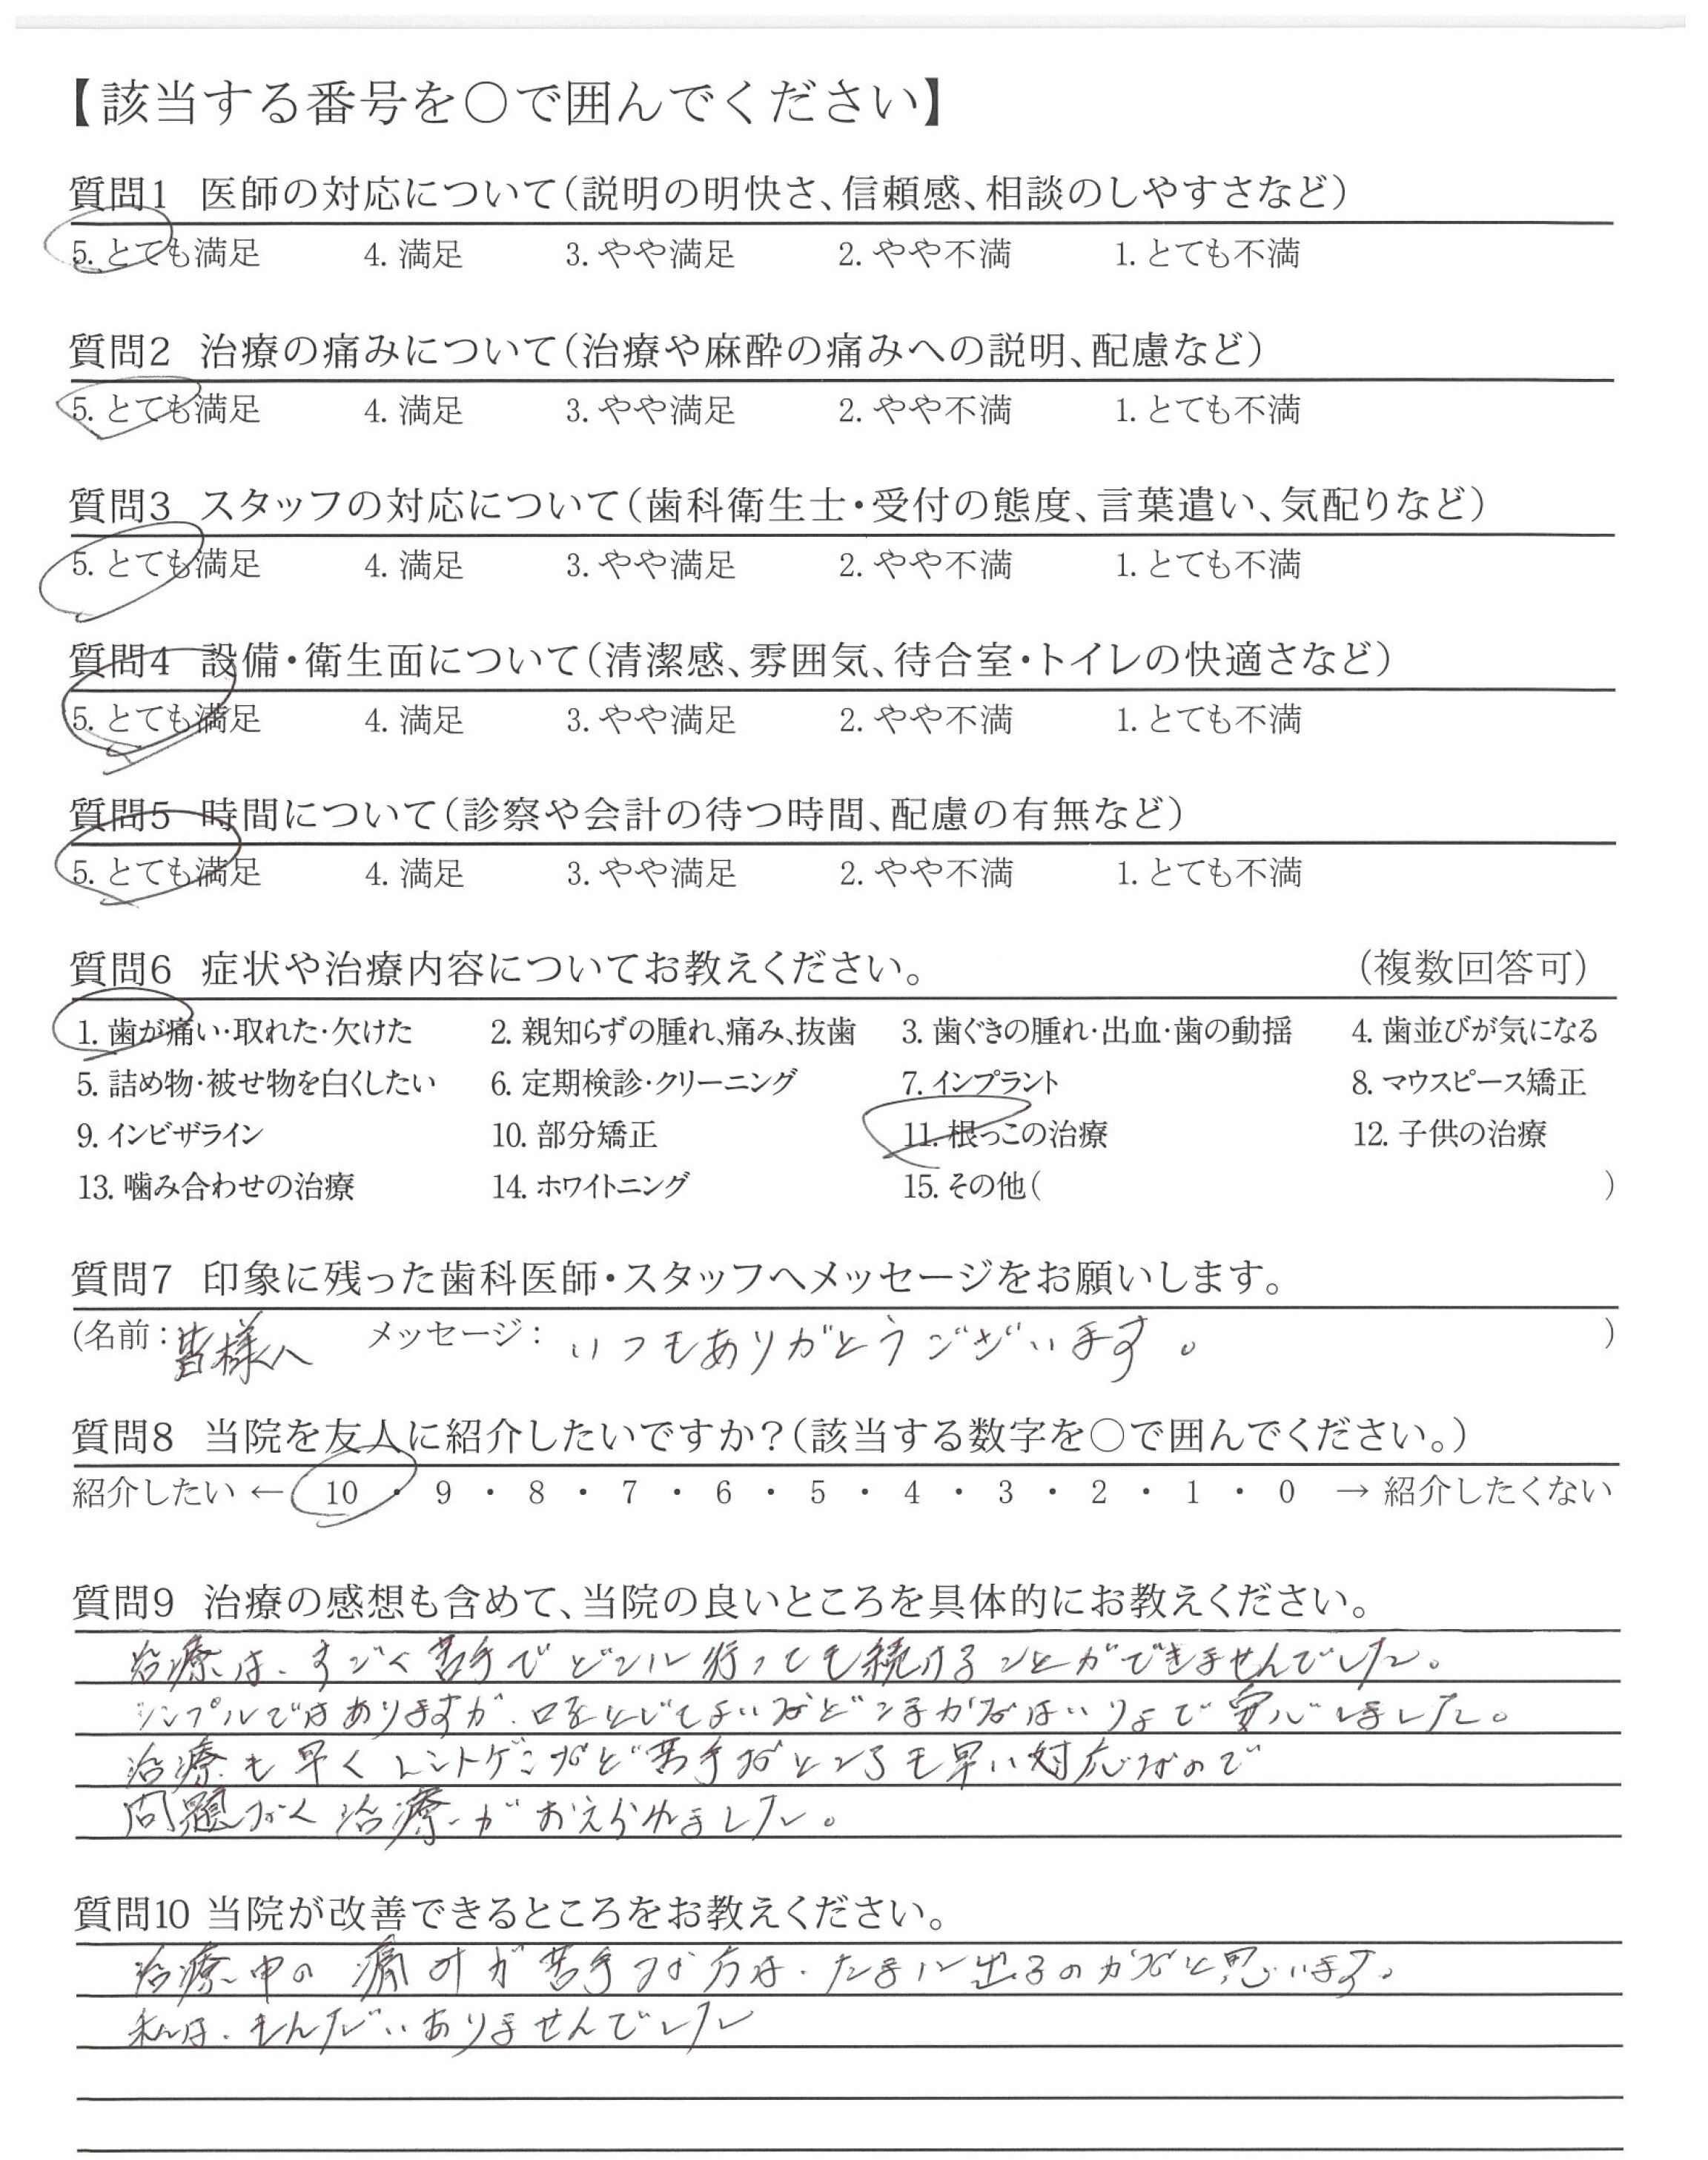 【該当する番号を○で囲んでください】
質問1 医師の対応について(説明の明快さ、信頼感、相談のしやすさなど)
5. とても満足 4. 満足 3. やや満足 2. やや不満 1. とても不満
質問2 治療の痛みについて(治療や麻酔の痛みへの説明、配慮など)
5. とても満足 4. 満足 3. やや満足 2. やや不満 1. とても不満
質問3 スタッフの対応について(歯科衛生士・受付の態度、言葉遣い、気配りなど)
5. とても満足 4. 満足 3. やや満足 2. やや不満 1. とても不満
質問4 設備・衛生面について(清潔感、雰囲気、待合室・トイレの快適さなど)
5. とても満足 4. 満足 3. やや満足 2. やや不満 1. とても不満
質問5 時間について(診察や会計の待つ時間、配慮の有無など)
5. とても満足 4. 満足 3. やや満足 2. やや不満 1. とても不満
質問6 症状や治療内容についてお教えください。 (複数回答可)
1. 歯が痛い・取れた・欠けた 2. 親知らずの腫れ、痛み、抜歯 3. 歯ぐきの腫れ・出血・歯の動揺 4. 歯並びが気になる
5. 詰め物・被せ物を白くしたい 6. 定期検診・クリーニング 7. インプラント 8. マウスピース矯正
9. インビザライン 10. 部分矯正 11. 根っこの治療 12. 子供の治療
13. 噛み合わせの治療 14. ホワイトニング 15. その他( )
質問7 印象に残った歯科医師・スタッフへメッセージをお願いします。
(名前:皆様へ メッセージ: いつもありがとうございます。 )
質問8 当院を友人に紹介したいですか?(該当する数字を○で囲んでください。)
紹介したい ← 10 ・ 9 ・ 8 ・ 7 ・ 6 ・ 5 ・ 4 ・ 3 ・ 2 ・ 1 ・ 0 → 紹介したくない
質問9 治療の感想も含めて、当院の良いところを具体的にお教えください。
治療は、すごく苦手でどこに行っても続けることができませんでした。
シンプルではありますが、口をとじてよいなどこまかなはいりょで安心しました。
治療も早くレントゲンなど苦手なところも早い対応なので
問題なく治療がおえられました。
質問10 当院が改善できるところをお教えください。
治療中の痛みが苦手な方は、たまに出るのかなと思います。
私は、もんだいありませんでした